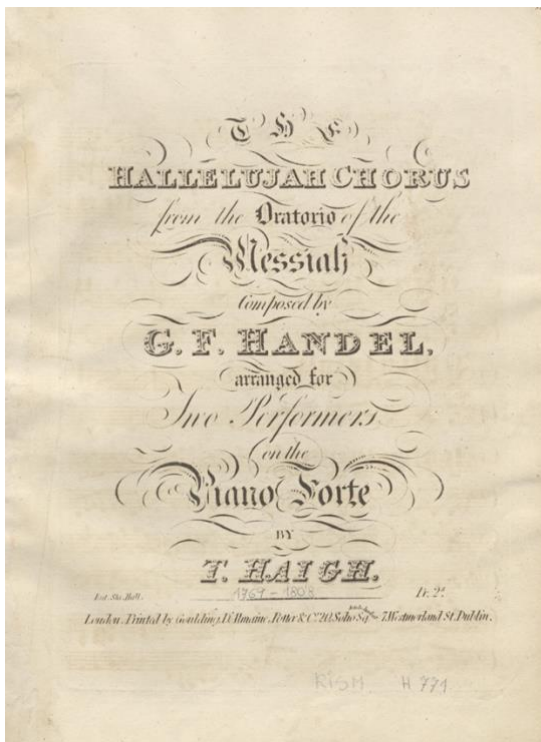 THE
HALLELUJAH CHORUS
from the Oratorio of the
Messiah
Composed by
G. F. HANDEL,
arranged for
Two Performers
on the
Piano Forte
BY
T. HAIGH.
Ent. Sta. Hall.
1769-1808
Pr. 2s.
London. Printed by Goulding, D'Almaine, Potter & Co. 20, Soho Sq. 7, Westmorland St. Dublin.
RISM H 771